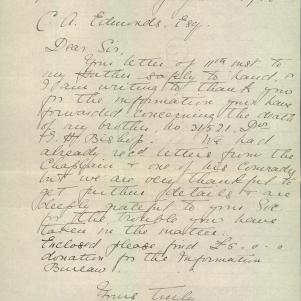 C. A. Edmonds, Esq.
Dear Sir,
Your letter of 11th inst to
my Father safely to hand, &
I am writing to thank you
for the information you have
forwarded concerning the death
of my brother, no 31521. Dvr
H. Bishop. We had
already rec'd letters from the
Chaplain & one of his Comrades
but we are very thankful to
get further details & are
deeply grateful to you Sir
for the trouble you have
taken in the matter.
Enclosed please find £5. 0. 0
donation for the Information
Bureau.
Yours truly